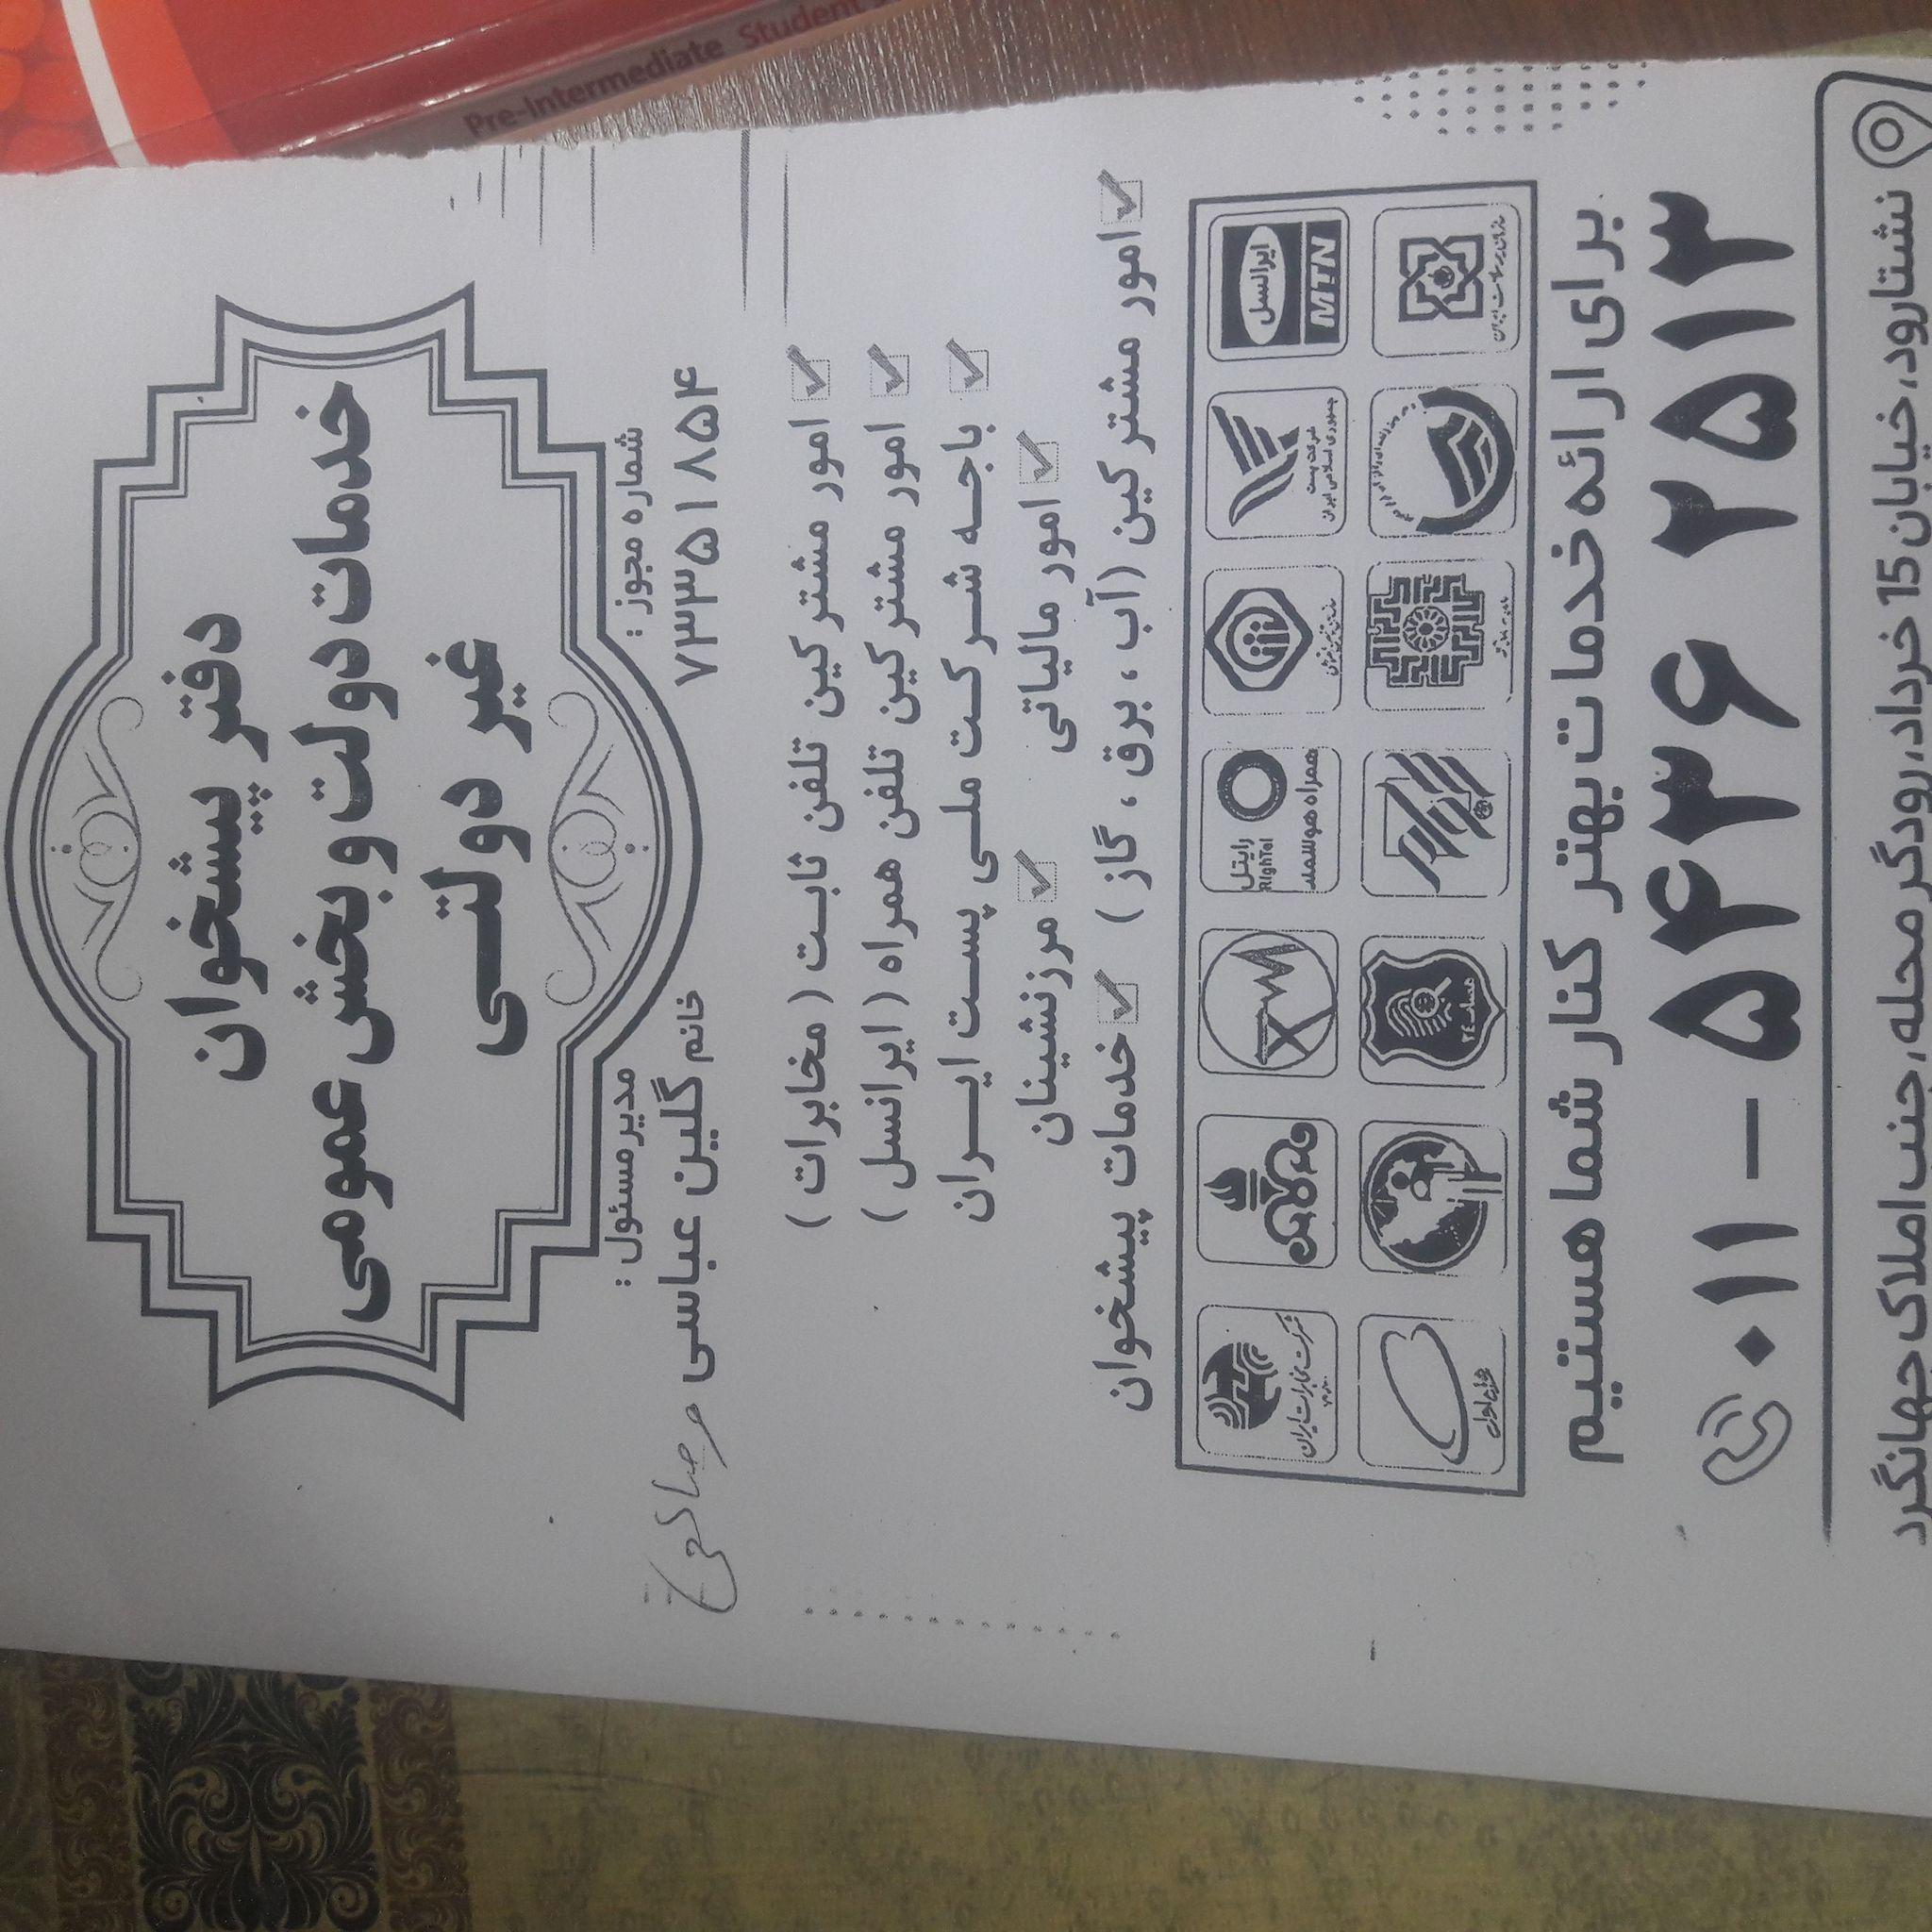 Pre-Intermediate Student
دفتر پیشخوان
خدمات دولت و بخش عمومی
غیر دولتی
شماره مجوز :
۷۳۳۵۱۸۵۴
مدیر مسئول :
خانم گلین عباسی
امور مشترکین تلفن ثابت ( مخابرات )
امور مشترکین تلفن همراه ( ایرانسل )
باجه شرکت ملی پست ایران
امور مالیاتی
مرزنشینان
امور مشترکین (آب ، برق ، گاز )
خدمات پیشخوان
ایرانسل
MTN
شرکت پست
جمهوری اسلامی ایران
رایتل
RighTel
همراه هوشمند
شرکت مخابرات ایران
همراه اول
برای ارائه خدمات بهتر کنار شما هستیم
۰۱۱ – ۵۴۳۶ ۲۵۱۳
نشتارود، خیابان 15 خرداد، رودگر محله، جنب املاک جهانگرد